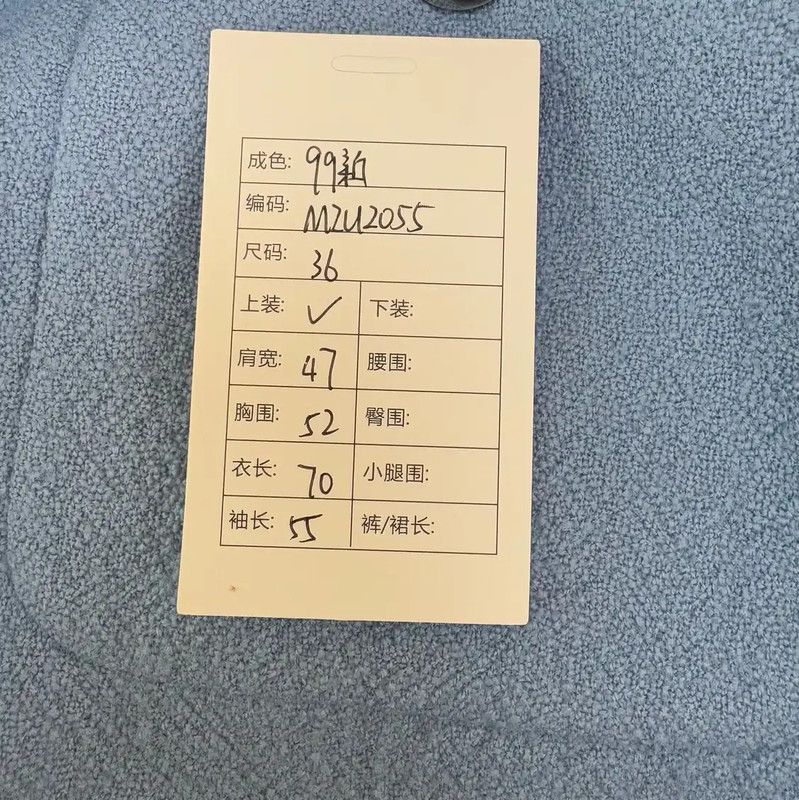 成色: 99新
编码: MZU2055
尺码: 36
上装: ✓ 下装:
肩宽: 47 腰围:
胸围: 52 臀围:
衣长: 70 小腿围:
袖长: 55 裤/裙长: